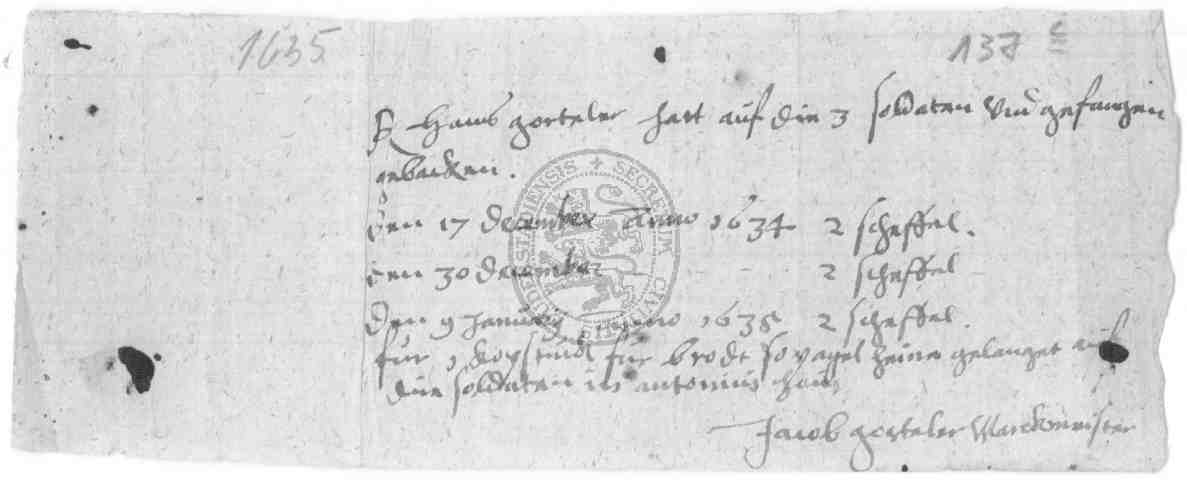 1635
137 c
Hans gorteler hatt auf die 3 soldaten und gefangen
gebacken.
den 17 december Anno 1634 2 scheffel.
den 30 december 2 scheffel
den 9 January Anno 1635 2 scheffel.
für 1 kopstuck für brodt so vagel heine gelanget auf
die soldaten in antonius haus
Jacob gorteler Marckmeister
SECRETUM